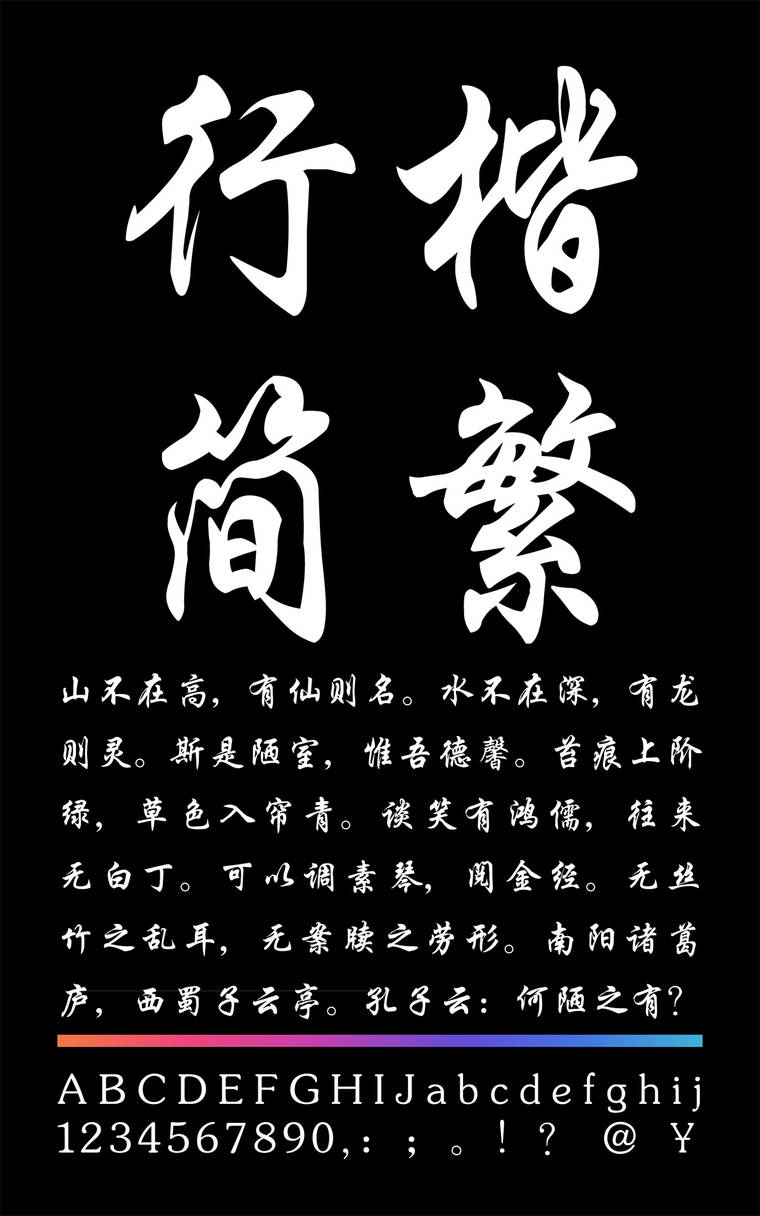 行楷
简繁
山不在高，有仙则名。水不在深，有龙
则灵。斯是陋室，惟吾德馨。苔痕上阶
绿，草色入帘青。谈笑有鸿儒，往来
无白丁。可以调素琴，阅金经。无丝
竹之乱耳，无案牍之劳形。南阳诸葛
庐，西蜀子云亭。孔子云：何陋之有？
ABCDEFGHIJabcdefghij
1234567890,：；。！？ @ ￥